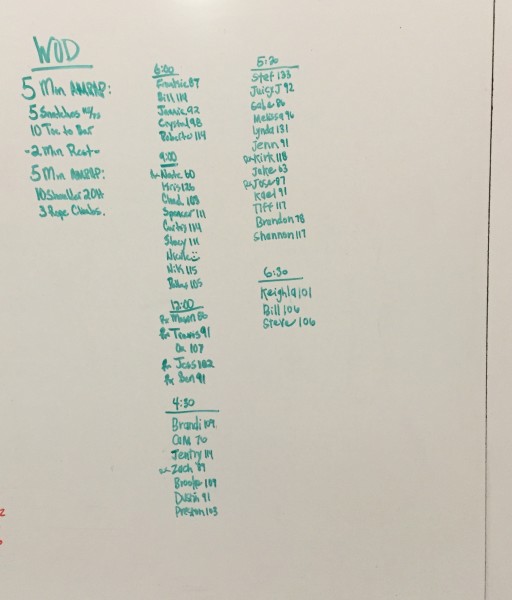 WOD
5 Min AMRAP:
5 Snatches
10 Toe to Bar
-2 Min Rest-
5 Min AMRAP:
10 Shoulder 2OH
3 Rope Climbs.
6:00
Frankie 87
Bill 114
Jamie 92
Crystal 98
Roberto 114
9:00
Rx Nate 60
Kris 126
Chad 103
Spencer 111
114
Stacy 111
Nicole
Nik 115
105
12:00
Rx Megan 86
Rx Travis 91
107
Rx Jess 102
Rx Ben 91
4:30
Brandi 109
Cam 70
Jentry 114
Zach 89
Brooke 109
Dustin 91
Preston 103
5:30
Stef 133
Juicy J 92
Gabe 86
Melissa 96
Lynda 131
Jenn 91
Rx Kirk 118
Jake 63
Rx Jose 87
Kael 91
Tiff 117
Brandon 78
Shannon 117
6:30
Keighla 101
Bill 106
Steve 106